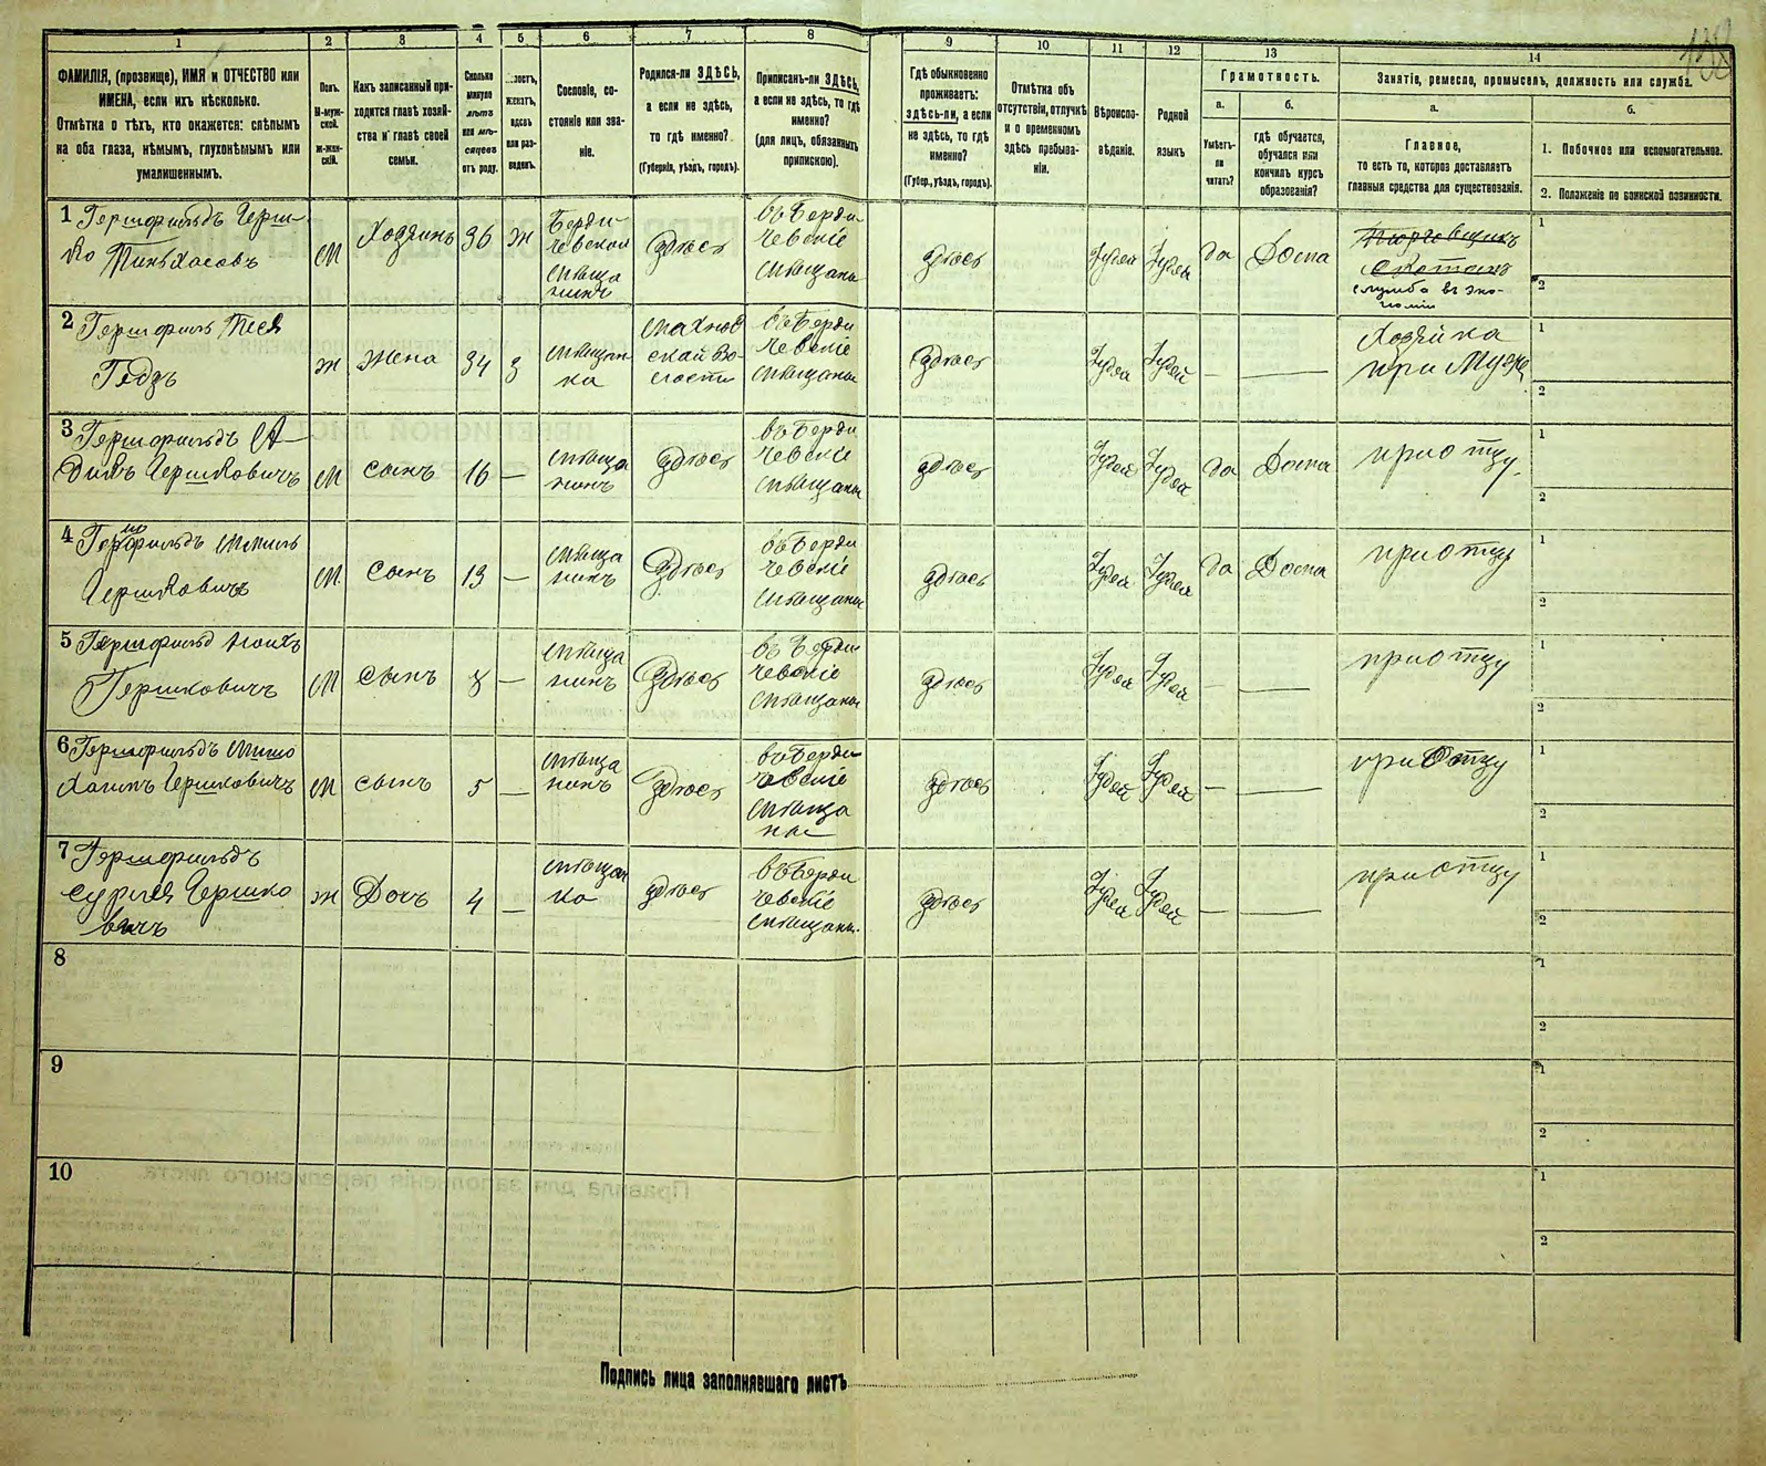 138
1 2 3 4 5 6 7 8 9 10 11 12 13 14
ФАМИЛІЯ, (прозвище), ИМЯ и ОТЧЕСТВО или
ИМЕНА, если ихъ нѣсколько.
Отмѣтка о тѣхъ, кто окажется: слѣпымъ
на оба глаза, нѣмымъ, глухонѣмымъ или
умалишеннымъ.
Полъ.
М-муж-
ской.
Ж-жен-
скій.
Какъ записанный при-
ходится главѣ хозяй-
ства и главѣ своей
семьи.
Сколько
минуло
лѣтъ
или мѣ-
сяцевъ
отъ роду.
женатъ,
вдовъ
или раз-
веденъ.
Сословіе, со-
стояніе или зва-
ніе.
Родился-ли ЗДѢСЬ,
а если не здѣсь,
то гдѣ именно?
(Губернія, уѣздъ, городъ).
Приписанъ-ли ЗДѢСЬ,
а если не здѣсь, то гдѣ
именно?
(для лицъ, обязанныхъ
припискою).
Гдѣ обыкновенно
проживаетъ:
здѣсь-ли, а если
не здѣсь, то гдѣ
именно?
(Губер., уѣздъ, городъ).
Отмѣтка объ
отсутствіи, отлучкѣ
и о временномъ
здѣсь пребыва-
ніи.
Вѣроиспо-
вѣданіе.
Родной
языкъ
Грамотность.
а.
Умѣетъ-
ли
читать?
б.
гдѣ обучается,
обучался или
кончилъ курсъ
образованія?
Занятіе, ремесло, промыселъ, должность или служба.
а.
Главное,
то есть то, которое доставляетъ
главныя средства для существованія.
б.
1. Побочное или вспомогательное.
2. Положеніе по воинской повинности.
1 Гершфильдъ Герш-
ко Пинхасовъ
М
Хозяинъ
36
Ж
Берди-
чевской
мѣща
нинъ
здѣсь
въ Берди-
чевскіе
мѣщане
здѣсь
Іудей
Іудей
да
Дома
Торговщикъ
скотомъ
служба въ эко-
номіи
1
2
2 Гершфиль
ж
жена
34
З
мѣщан
ка
Махнов
ской Во-
лости
въ Берди
чевскіе
мѣщане
здѣсь
Іудей
Іудей
—
—
Хозяйка
при Мужѣ
1
2
3 Гершфильдъ
Гершковичъ
М
сынъ
16
—
мѣща
нинъ
здѣсь
въ Берди
чевскіе
мѣщане
здѣсь
Іудей
Іудей
да
Дома
при отцу
1
2
4 Гершфильдъ Шмиль
Гершковичъ
М
сынъ
13
—
мѣща
нинъ
Здѣсь
въ Берди
чевскіе
мѣщане
здѣсь
Іудей
Іудей
да
Дома
при отцу
1
2
5 Гершфильд
Гершковичъ
М
сынъ
8
—
мѣща
нинъ
Здѣсь
въ Берди
чевскіе
мѣщане
здѣсь
Іудей
Іудей
—
—
при отцу
1
2
6 Гершфильдъ
Хаимъ Гершковичъ
М
сынъ
5
—
мѣща
нинъ
Здѣсь
въ Берди
чевскіе
мѣща
не
здѣсь
Іудей
Іудей
—
—
при Отцу
1
2
7 Гершфильдъ
Гершко
вичъ
ж
Дочь
4
—
мѣщан
ка
здѣсь
въ Берди
чевскіе
мѣщане.
здѣсь
Іудей
Іудей
—
—
при отцу
1
2
8
1
2
9
1
2
10
1
2
Подпись лица заполнявшаго листъ